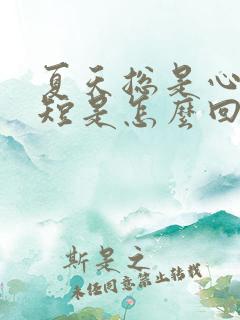 夏天总是心
短是怎麼回
斯是之
未经同意禁止转载